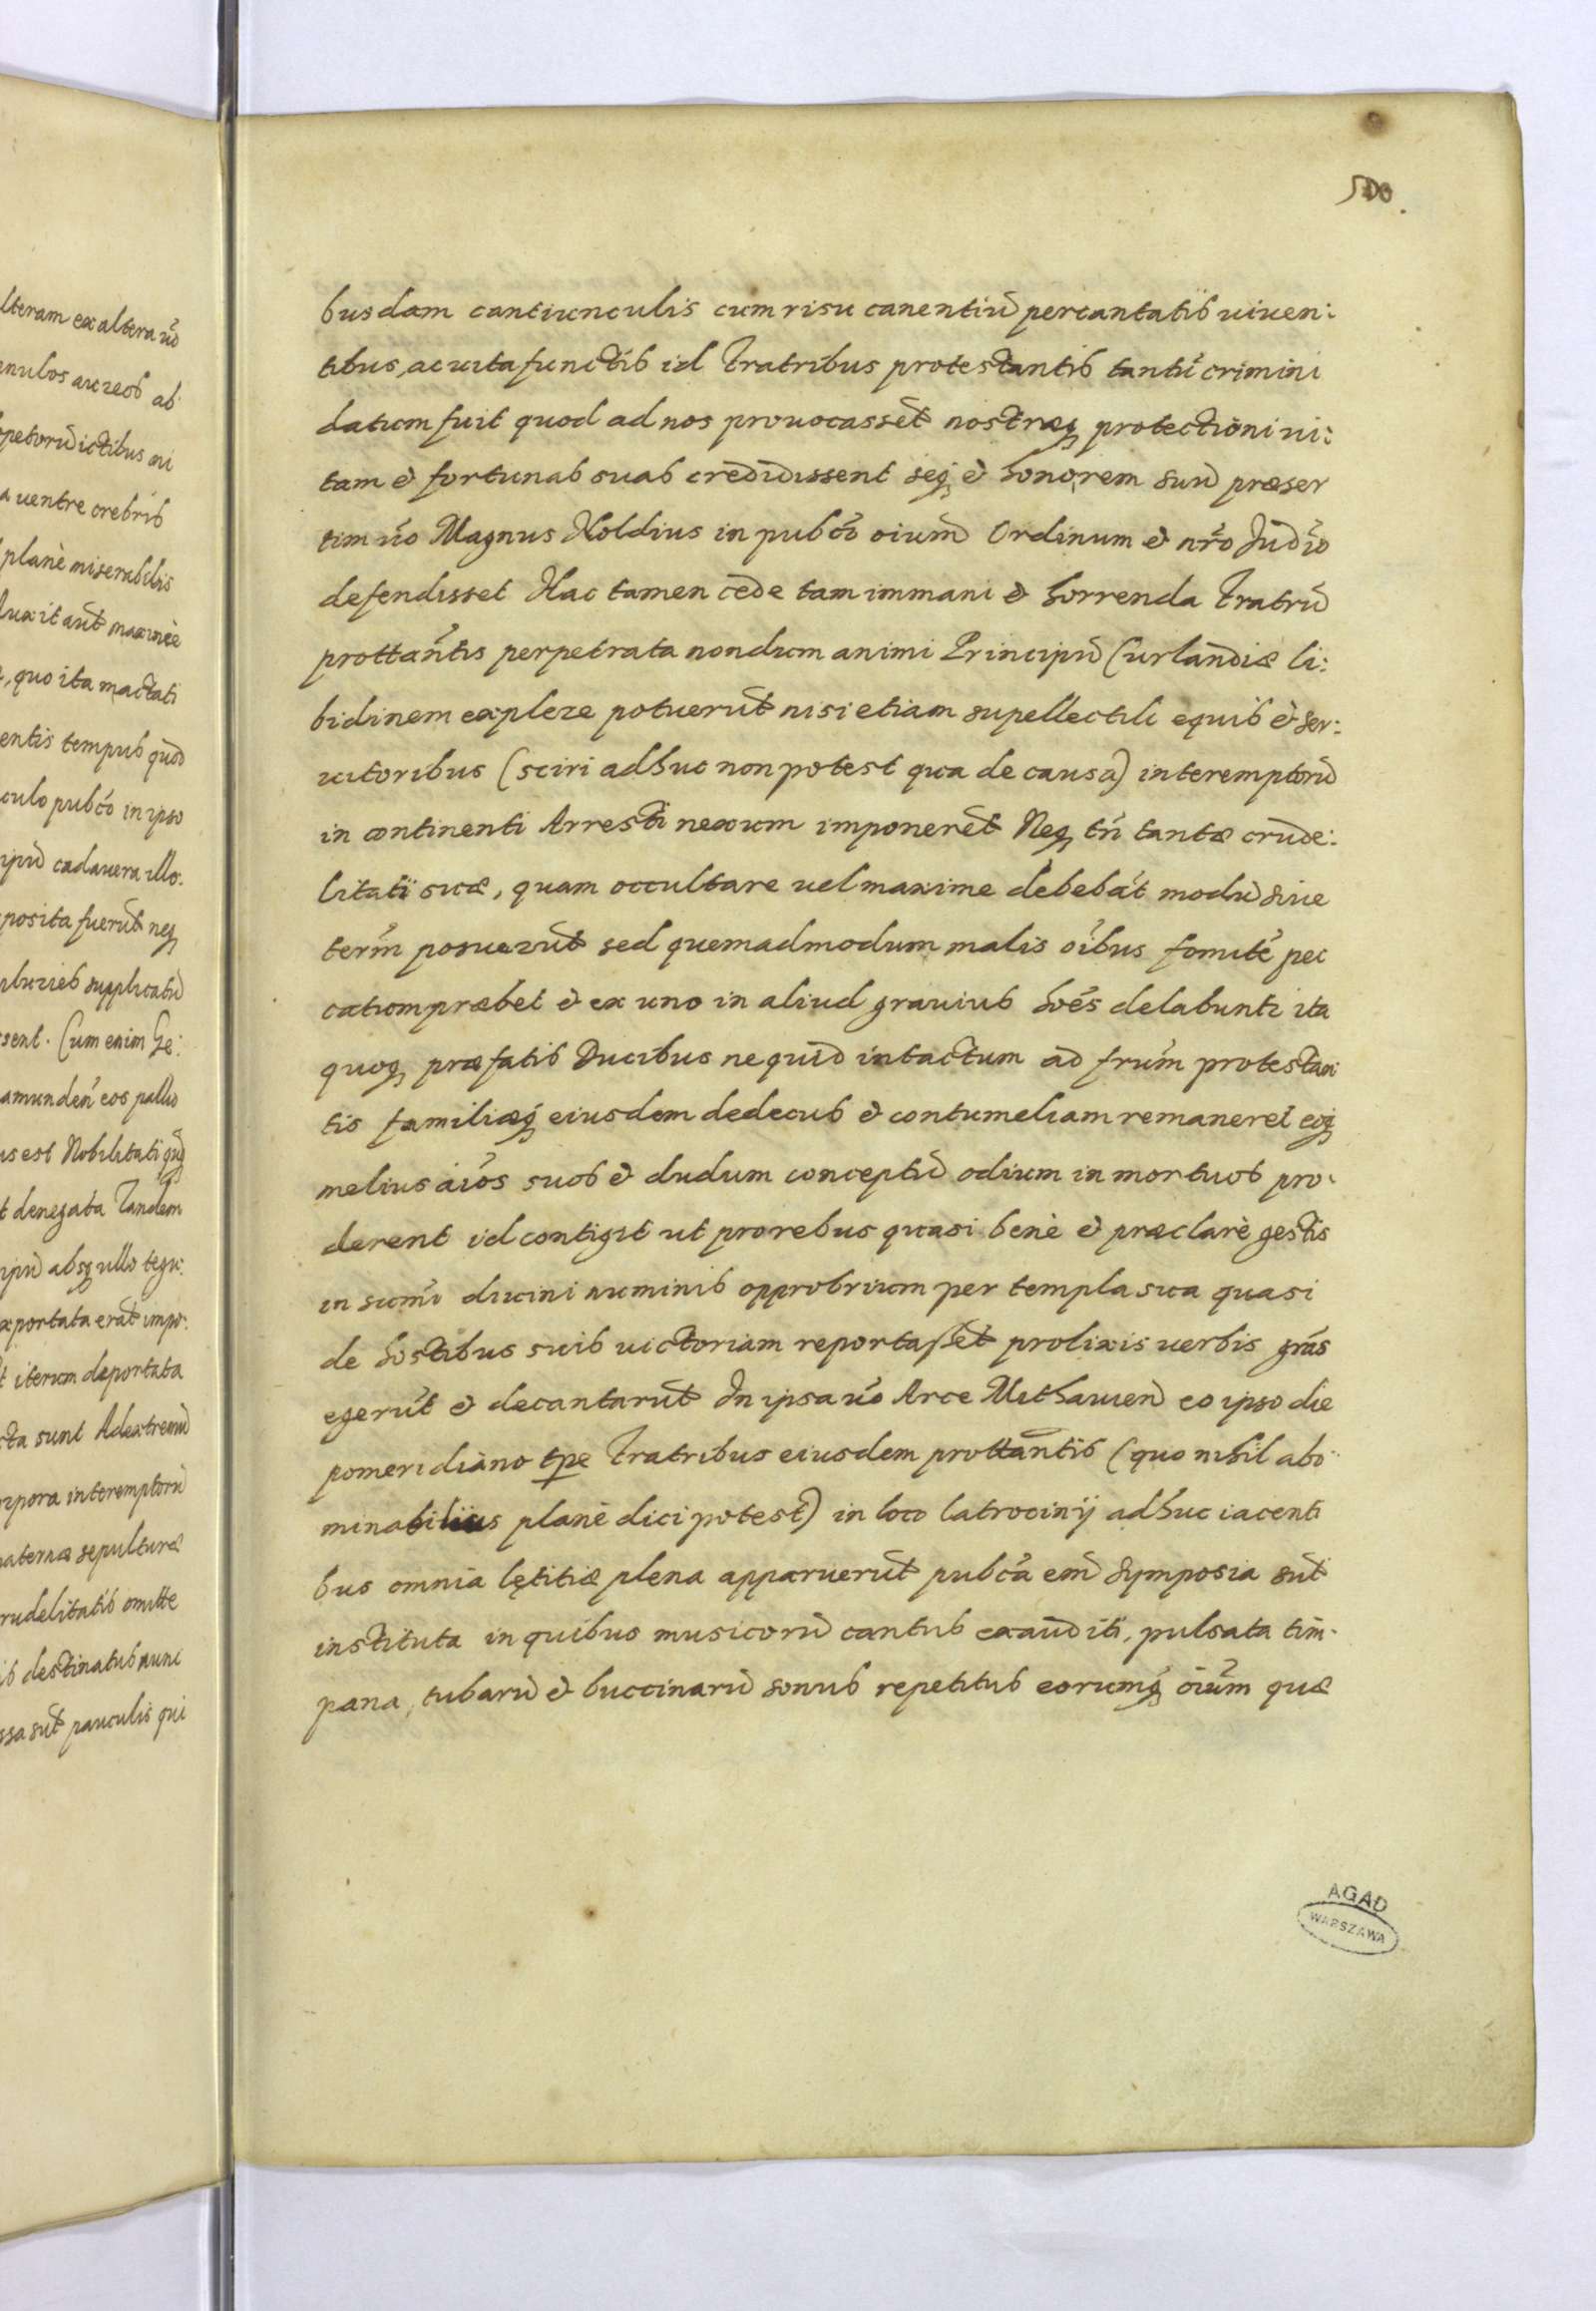 lteram ex altera uō
nnulos aureos ab
petorū ictibus ai
a uentre crebris
planè miserabilis
luxit aūt maximè
, quo ita mactati
entis tempus quod
culo pubcō in ipso
ipū cadauera illo:
posita fuerūt neq
pluries supplicatū
sent. Cum enim Ge:
amunden̄ eos pallio
us est Nobilitati
t denegata Tandem
ipū absq ullo tegu:
xportata erāt impo:
t iterum deportata
ta sunt Ad extremū
rpora interemptorū
aternæ sepulturæ
rudelitatis omitte
is destinatus nunc
ssa sūt pauculis qui
500.
busdam cantiunculis cum risu canentiū percantatis uiuen:
tibus, ac uita functis id Fratribus protestantis tantū crimini
datum fuit quod ad nos prouocassēt nostræq protectioni ui:
tam & fortunas suas credidissent seq & honorem suū præser
tim uō Magnus Noldius in pubcō oium Ordinum & nrō Judiō
defendisset Hac tamen cede tam immani & horrenda Fratrū
prottañtis perpetrata nondum animi Principū Curlandiæ li:
bidinem explere potuerūt nisi etiam supellectili equis & ser:
uitoribus (sciri adhuc non potest qua de causa) interemptorū
in continenti Arresti nexum imponerēt Neq tn̄ tantæ crude:
litati suæ, quam occultare uel maxime debebāt modū siue
term̄ posuerūt sed quemadmodum malis oībus fomitē pec
catum præbet & ex uno in aliud grauius hoēs delabuntr ita
quoq præfatis Ducibus ne quid intactum ad frum̄ protestan
tis familiæq eiusdem dedecus & contumeliam remaneret eoq
melius aīos suos & dudum conceptū odium in mortuos pro:
derent id contigit ut pro rebus quasi benè & præclarè gestis
in sum̄i diuini numinis opprobrium per templa sua quasi
de hostibus suis uictoriam reportassēt prolixis uerbis grās
egerūt & decantarūt In ipsa uō Arce Mithauien̄ eo ipso die
pomeridiano tpe Fratribus eiusdem prottantis (quo nihil abo:
minabilius planè dici potest) in loco latrocinij adhuc iacenti
bus omnia lętitiæ plena apparuerūt pubcā em̄ Symposia sūt
instituta in quibus musicorū cantus exauditi, pulsata tim:
pana, tubarū & buccinarū sonus repetitus eorumq oiūm quæ
AGAD
WARSZAWA